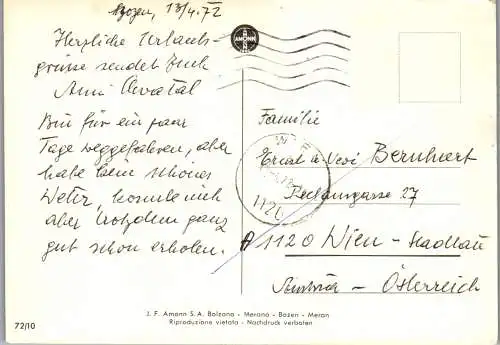 Bozen, 13/4.72
Herzliche Urlaubs-
grüsse sendet Euch
Anni
Bin für ein paar
Tage weggefahren, aber
habe kein schönes
Wetter, konnte mich
aber trotzdem ganz
gut schon erholen.
AMONN
Familie
Ernst u. Vevi Bernhart
27
A 1120 Wien - Stadlau
Austria - Österreich
WIEN
1120
J. F. Amonn S. A. Bolzano - Merano - Bozen - Meran
Riproduzione vietata - Nachdruck verboten
72/10